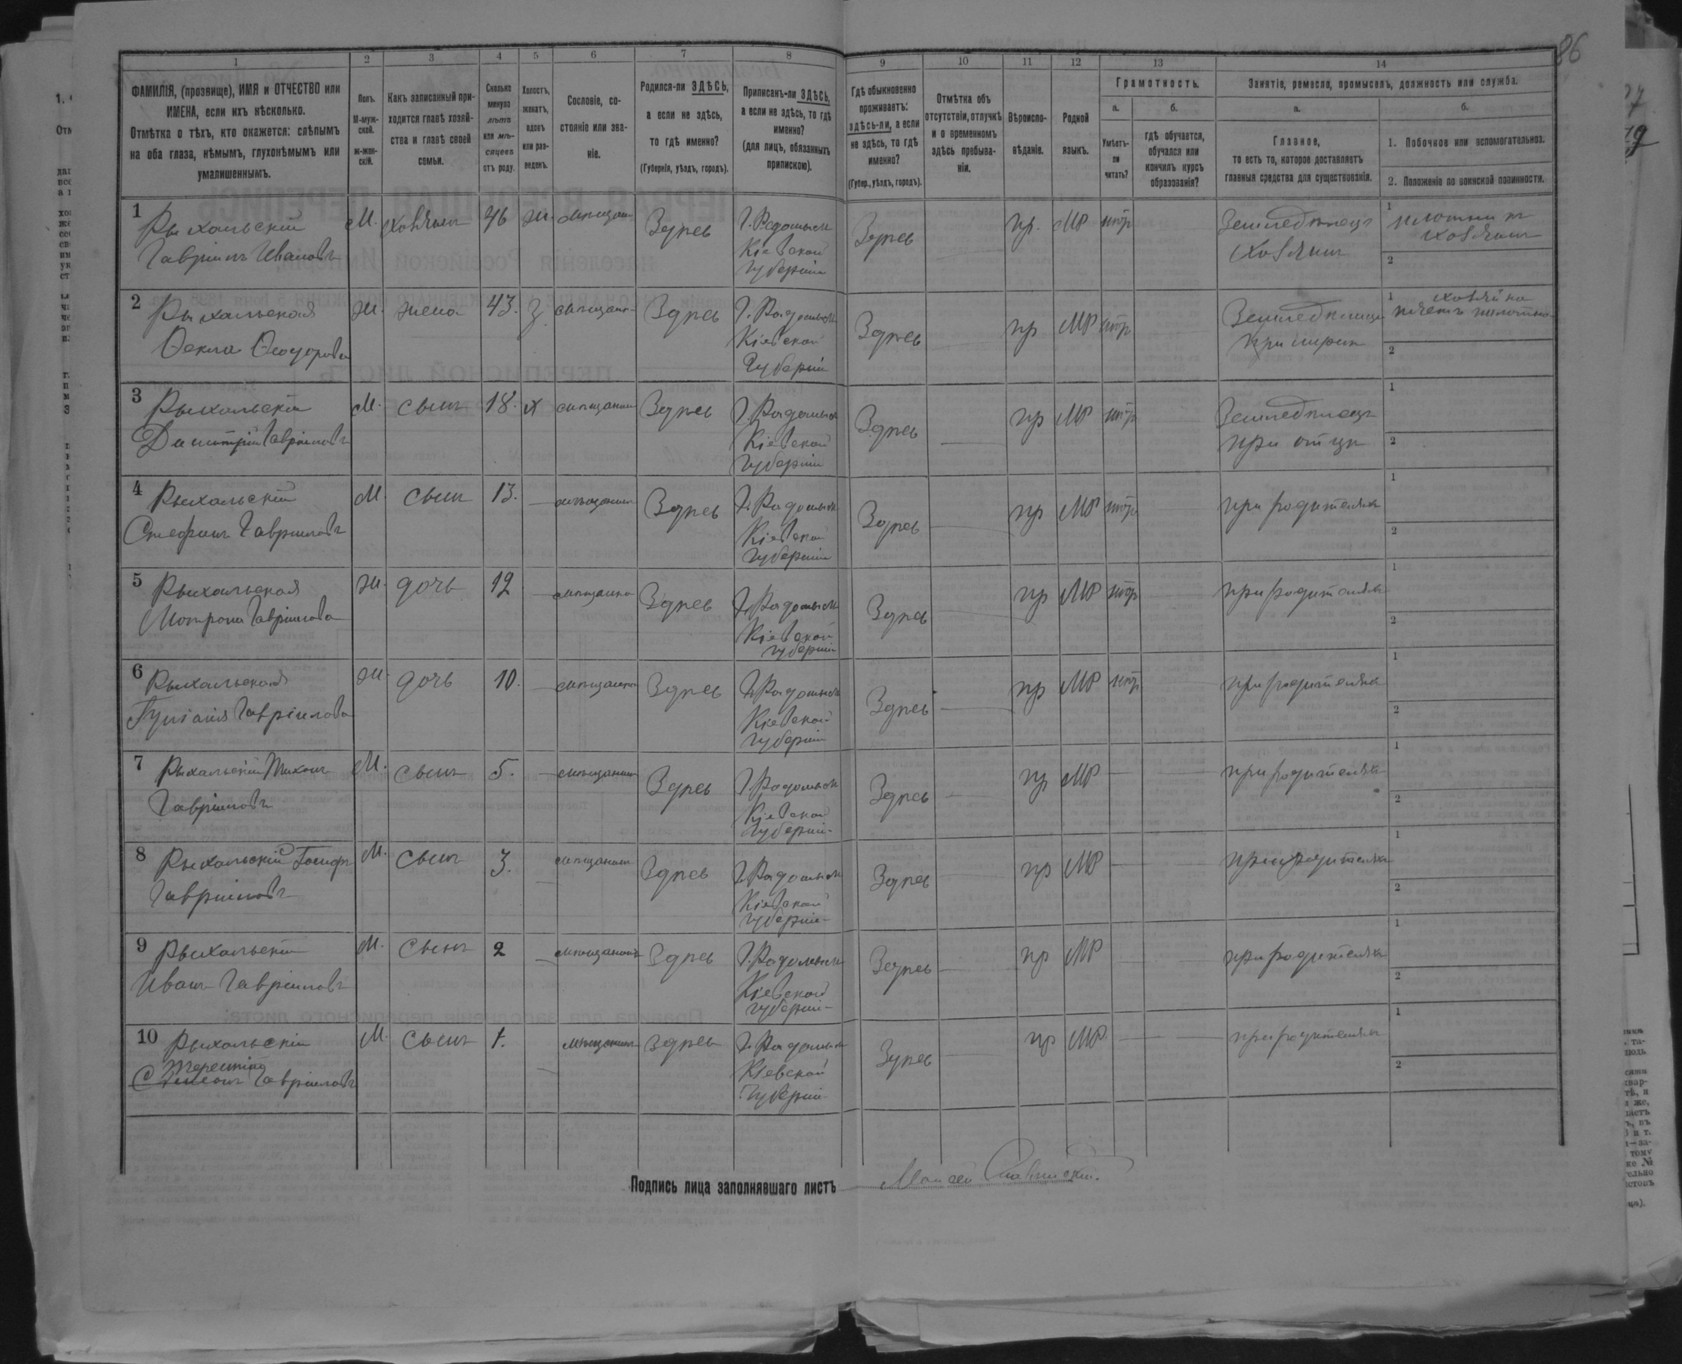 86
1 2 3 4 5 6 7 8 9 10 11 12 13 14
ФАМИЛІЯ, (прозвище), ИМЯ и ОТЧЕСТВО или
ИМЕНА, если ихъ нѣсколько.
Отмѣтка о тѣхъ, кто окажется: слѣпымъ
на оба глаза, нѣмымъ, глухонѣмымъ или
умалишеннымъ.
Полъ.
М-муж-
ской.
ж-жен-
скій.
Какъ записанный при-
ходится главѣ хозяй-
ства и главѣ своей
семьи.
Сколько
минуло
лѣтъ
или мѣ-
сяцевъ
отъ роду.
Холостъ,
женатъ,
вдовъ
или раз-
веденъ.
Сословіе, со-
стояніе или зва-
ніе.
Родился-ли ЗДѢСЬ,
а если не здѣсь,
то гдѣ именно?
(Губернія, уѣздъ, городъ).
Приписанъ-ли ЗДѢСЬ,
а если не здѣсь, то гдѣ
именно?
(для лицъ, обязанныхъ
припискою).
Гдѣ обыкновенно
проживаетъ:
здѣсь-ли, а если
не здѣсь, то гдѣ
именно?
(Губер., уѣздъ, городъ).
Отмѣтка объ
отсутствіи, отлучкѣ
и о временномъ
здѣсь пребыва-
ніи.
Вѣроиспо-
вѣданіе.
Родной
языкъ.
Грамотность.
а.
Умѣетъ-
ли
читать?
б.
гдѣ обучается,
обучался или
кончилъ курсъ
образованія?
Занятіе, ремесло, промыселъ, должность или служба.
а.
Главное,
то есть то, которое доставляетъ
главныя средства для существованія.
б.
1. Побочное или вспомогательное.
2. Положеніе по воинской повинности.
1 Рыхальскій М. хозяинъ 46 ж. мѣщан. Здѣсь Г. Радомысль Здѣсь пр. МР нѣтр Земледѣлецъ 1
Гавріилъ Ивановъ Кіевской хозяинъ хозяинъ
Губерніи 2
2 Рыхальская ж. жена 43. з мѣщан. Здѣсь Г. Радомысль Здѣсь пр МР Земледѣлица 1 хозяйка
Ѳекла Ѳеодорова Кіевской при мужѣ
Губерніи 2
3 Рыхальскій М. сынъ 18. х мѣщанинъ Здѣсь Г. Радомысль Здѣсь пр МР Земледѣлецъ 1
Димитрій Гавріиловъ Кіевской при отцѣ 2
Губерніи
4 Рыхальскій М. сынъ 13. мѣщанинъ Здѣсь Г. Радомысль Здѣсь пр МР при родителяхъ 1
Стефанъ Гавріиловъ Кіевской 2
Губерніи
5 Рыхальская ж. дочь 12 мѣщанка Здѣсь Г. Радомысль Здѣсь пр МР при родителяхъ 1
Мотрона Гавріилова Кіевской 2
Губерніи
6 Рыхальская ж. дочь 10. мѣщанка Здѣсь Г. Радомысль Здѣсь пр МР при родителяхъ 1
Гавріилова Кіевской 2
Губерніи
7 Рыхальскій Тихонъ М. сынъ 5. мѣщанинъ Здѣсь Г. Радомысль Здѣсь пр МР при родителяхъ 1
Гавріиловъ Кіевской 2
Губерніи
8 Рыхальскій Іосифъ М. сынъ 3. мѣщанинъ Здѣсь Г. Радомысль Здѣсь пр МР при родителяхъ 1
Гавріиловъ Кіевской 2
Губерніи
9 Рыхальскій М. сынъ 2 мѣщанинъ Здѣсь Г. Радомысль Здѣсь пр МР при родителяхъ 1
Иванъ Гавріиловъ Кіевской 2
Губерніи
10 Рыхальскій М. сынъ 1. мѣщанинъ Здѣсь Г. Радомысль Здѣсь пр МР при родителяхъ 1
Терентій Кіевской 2
Гавріиловъ Губерніи
Подпись лица заполнявшаго листъ